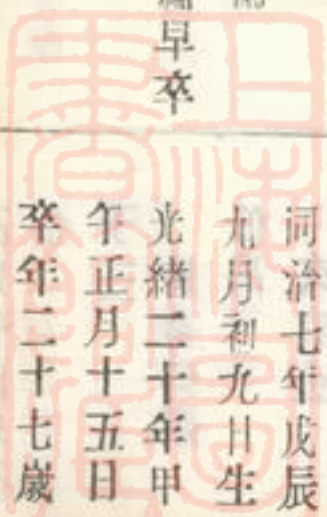 早卒
同治七年戊辰
九月初九日生
光緒二十年甲
午正月十五日
卒年二十七歲